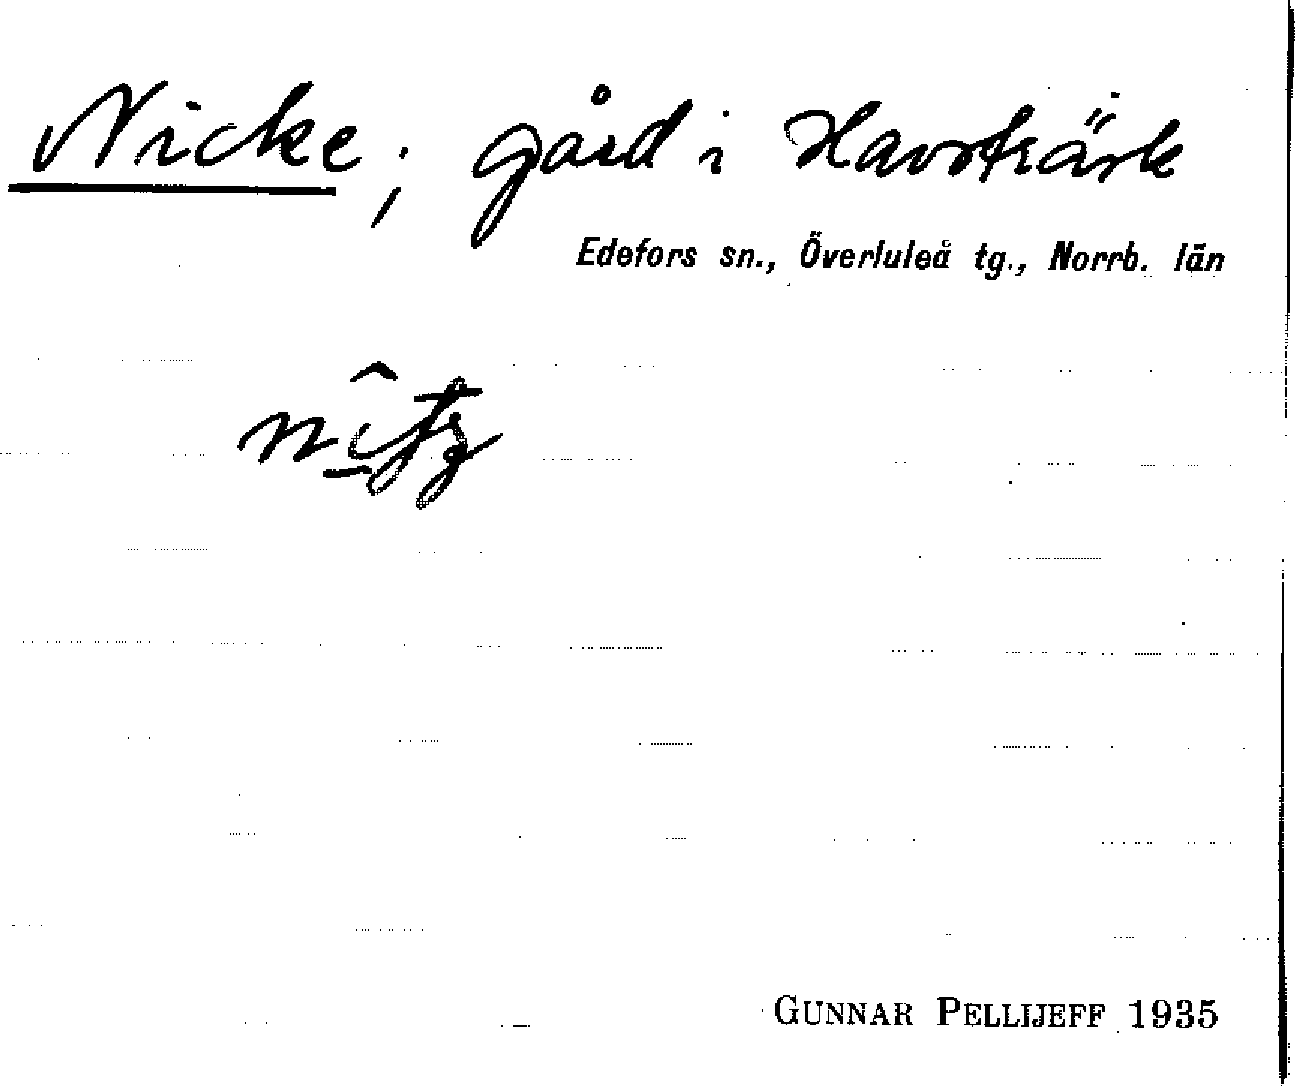 Nicke; gård i Havsträsk
Edefors sn., Överluleå tg., Norrb. län
GUNNAR PELLIJEFF 1935